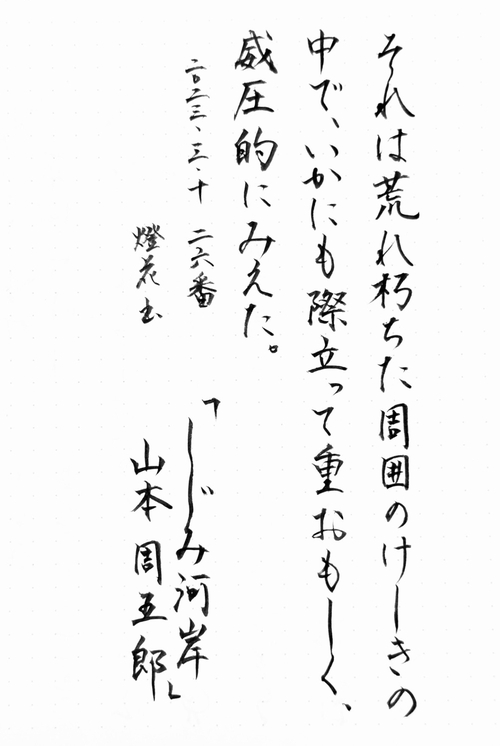 それは荒れ朽ちた周囲のけしきの
中で、いかにも際立って重おもしく、
威圧的にみえた。
二〇二三、三・十 二六番
燈花书
「しじみ河岸」
山本周五郎